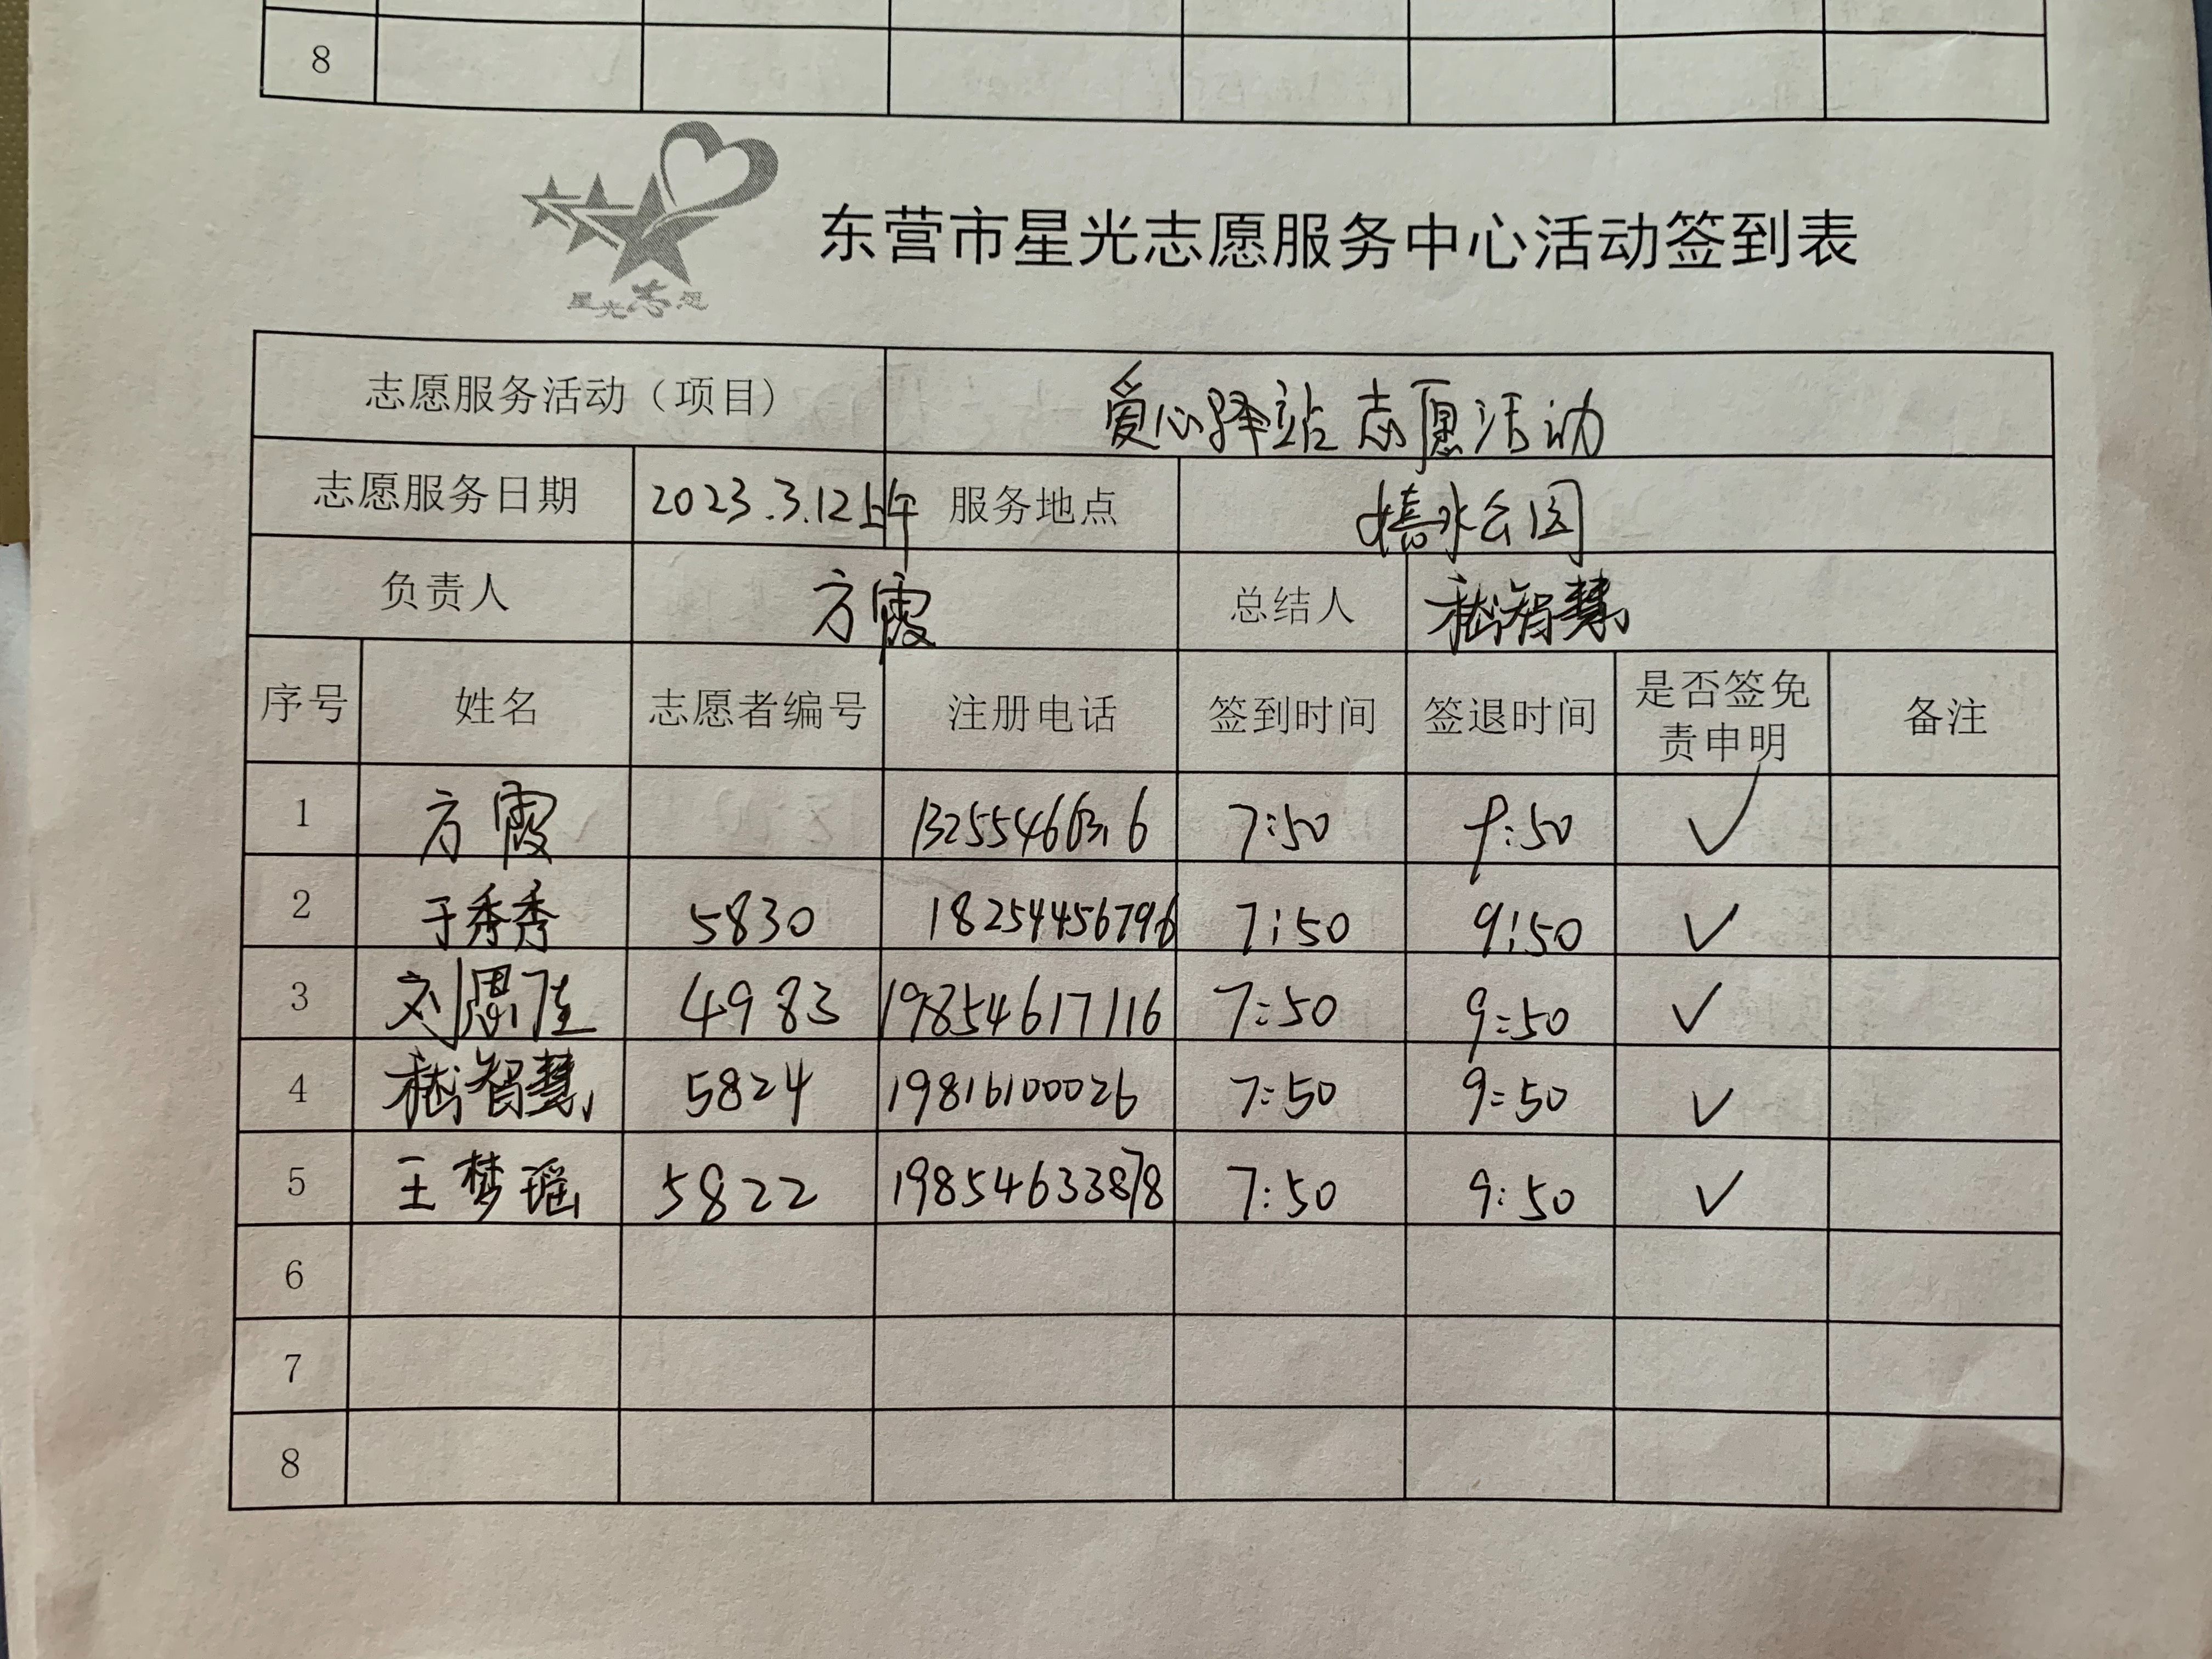 8
星光志愿
东营市星光志愿服务中心活动签到表
志愿服务活动（项目） 爱心驿站志愿活动
志愿服务日期 2023.3.12上午 服务地点 悟水公园
负责人 方霞 总结人 嵇智慧
序号 姓名 志愿者编号 注册电话 签到时间 签退时间 是否签免责申明 备注
1 方霞 7:50 9:50 ✓
2 于秀秀 5830 18254456796 7:50 9:50 ✓
3 刘思佳 4983 19854617116 7:50 9:50 ✓
4 嵇智慧 5824 19816100026 7:50 9:50 ✓
5 王梦瑶 5822 19854633878 7:50 9:50 ✓
6
7
8